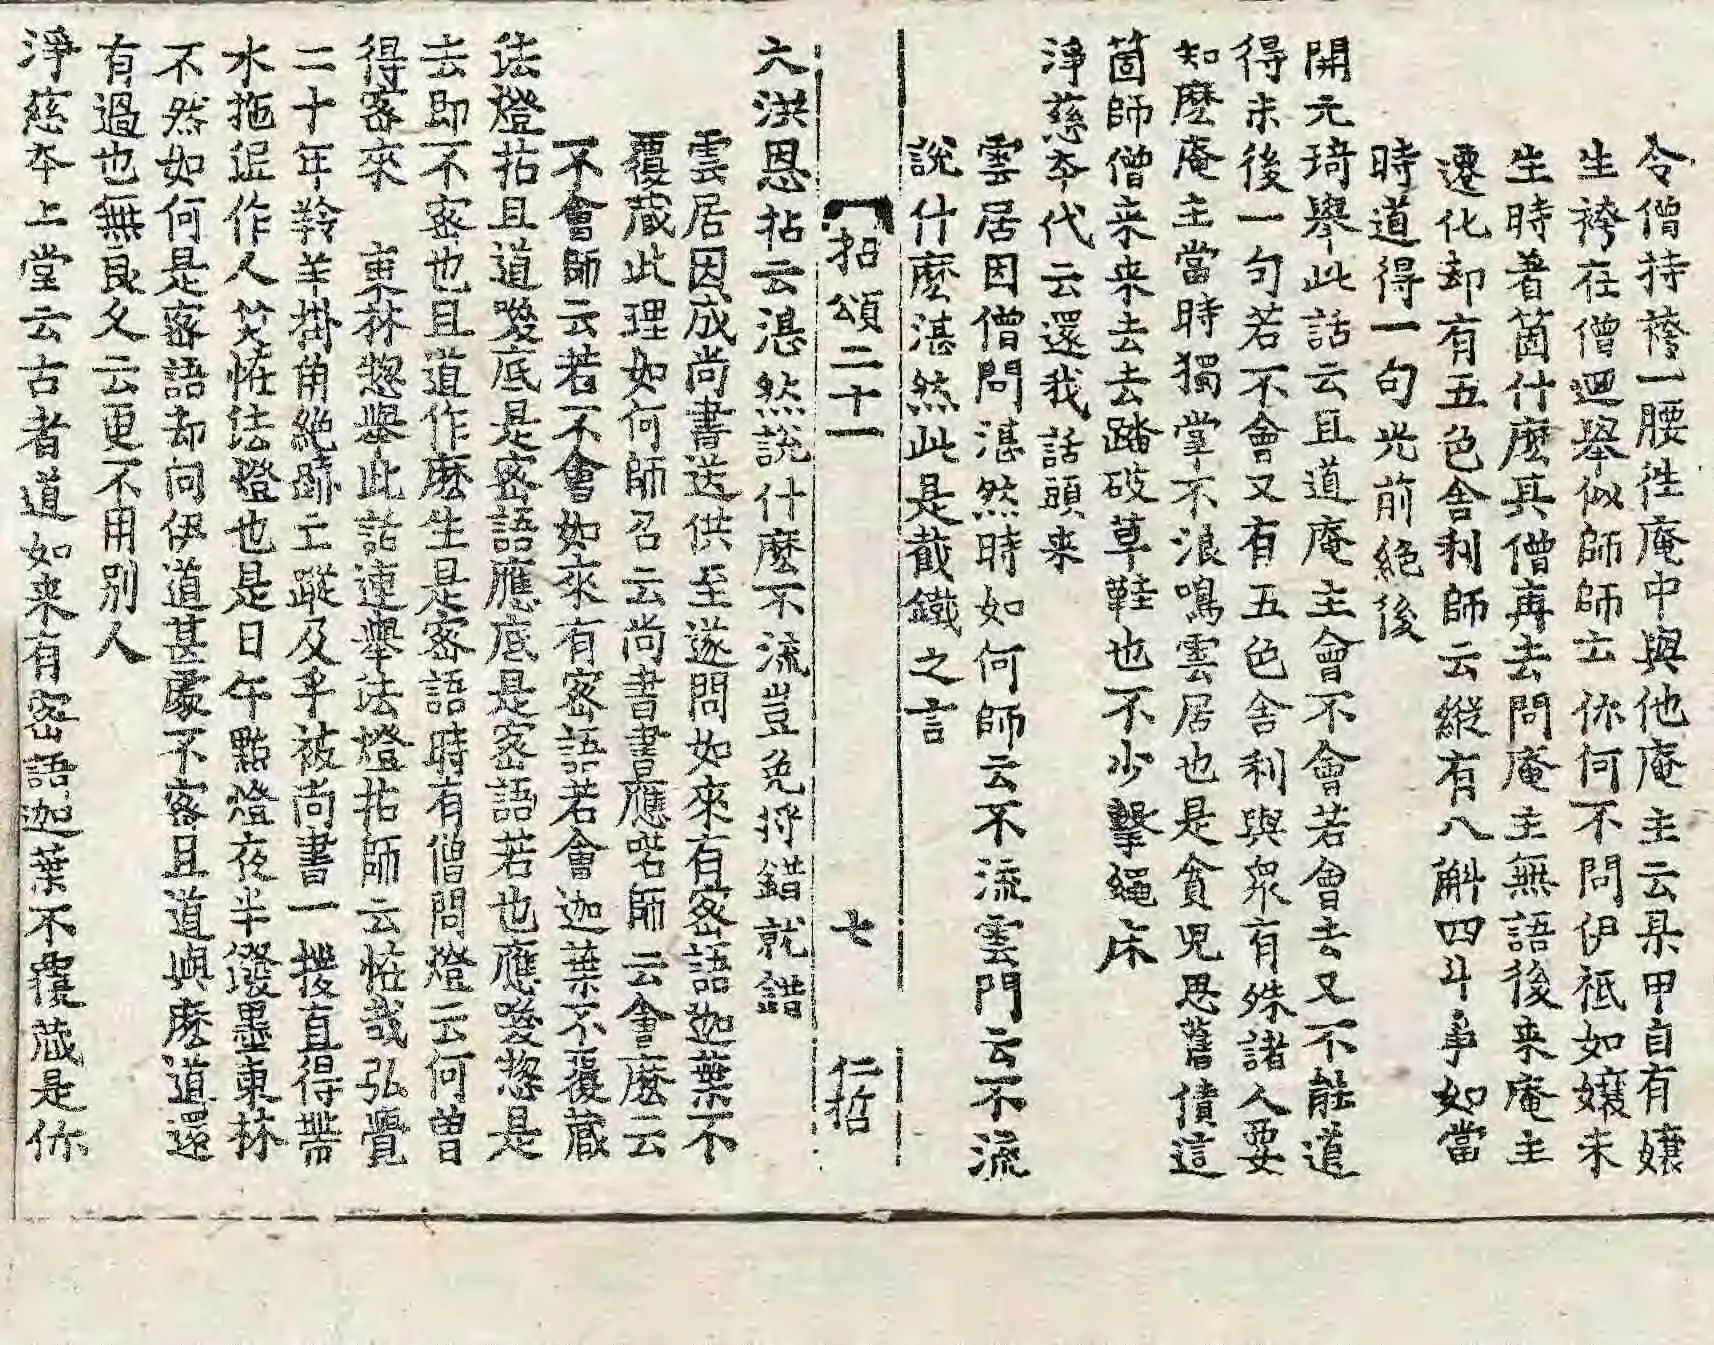 令僧持袴一腰徃庵中與他庵主云某甲自有孃
生袴在僧迴舉似師師云你何不問伊祗如孃未
生時著箇什麽其僧再去問庵主無語後来庵主
遷化却有五色舍利師云縱有八斛四斗爭如當
時道得一句光前絶後
開元琦舉此話云且道庵主會不會若會去又不能道
得末後一句若不會又有五色舍利與衆有殊諸人要
知麽庵主當時獨掌不浪鳴雲居也是貪兒思舊債這
箇師僧来来去去踏破草鞋也不少擊繩床
淨慈本代云還我話頭来
雲居因僧問湛然時如何師云不流雲門云不流
說什麽湛然此是截鐵之言
拈頌二十一　七　仁哲
大洪恩拈云湛然說什麽不流豈免将錯就錯
雲居因成尚書送供至遂問如來有密語迦葉不
覆蔵此理如何師召云尚書書應喏師云會麽云
不會師云若不會如來有密語若會迦葉不覆蔵
法燈拈且道喚底是密語應底是密語若也應喚惣是
去即不密也且道作麽生是密語時有僧問燈云何曽
得密來　東林惣舉此話連舉法燈拈師云恠哉弘覺
二十年羚羊掛角絶蹄亡蹤及乎被尚書一拶直得帶
水拖泥作人笑恠法燈也是日午點燈夜半潑墨東林
不然如何是密語却向伊道甚處不密且道與麽道還
有過也無良久云更不用别人
淨慈本上堂云古者道如来有密語迦葉不覆蔵是你